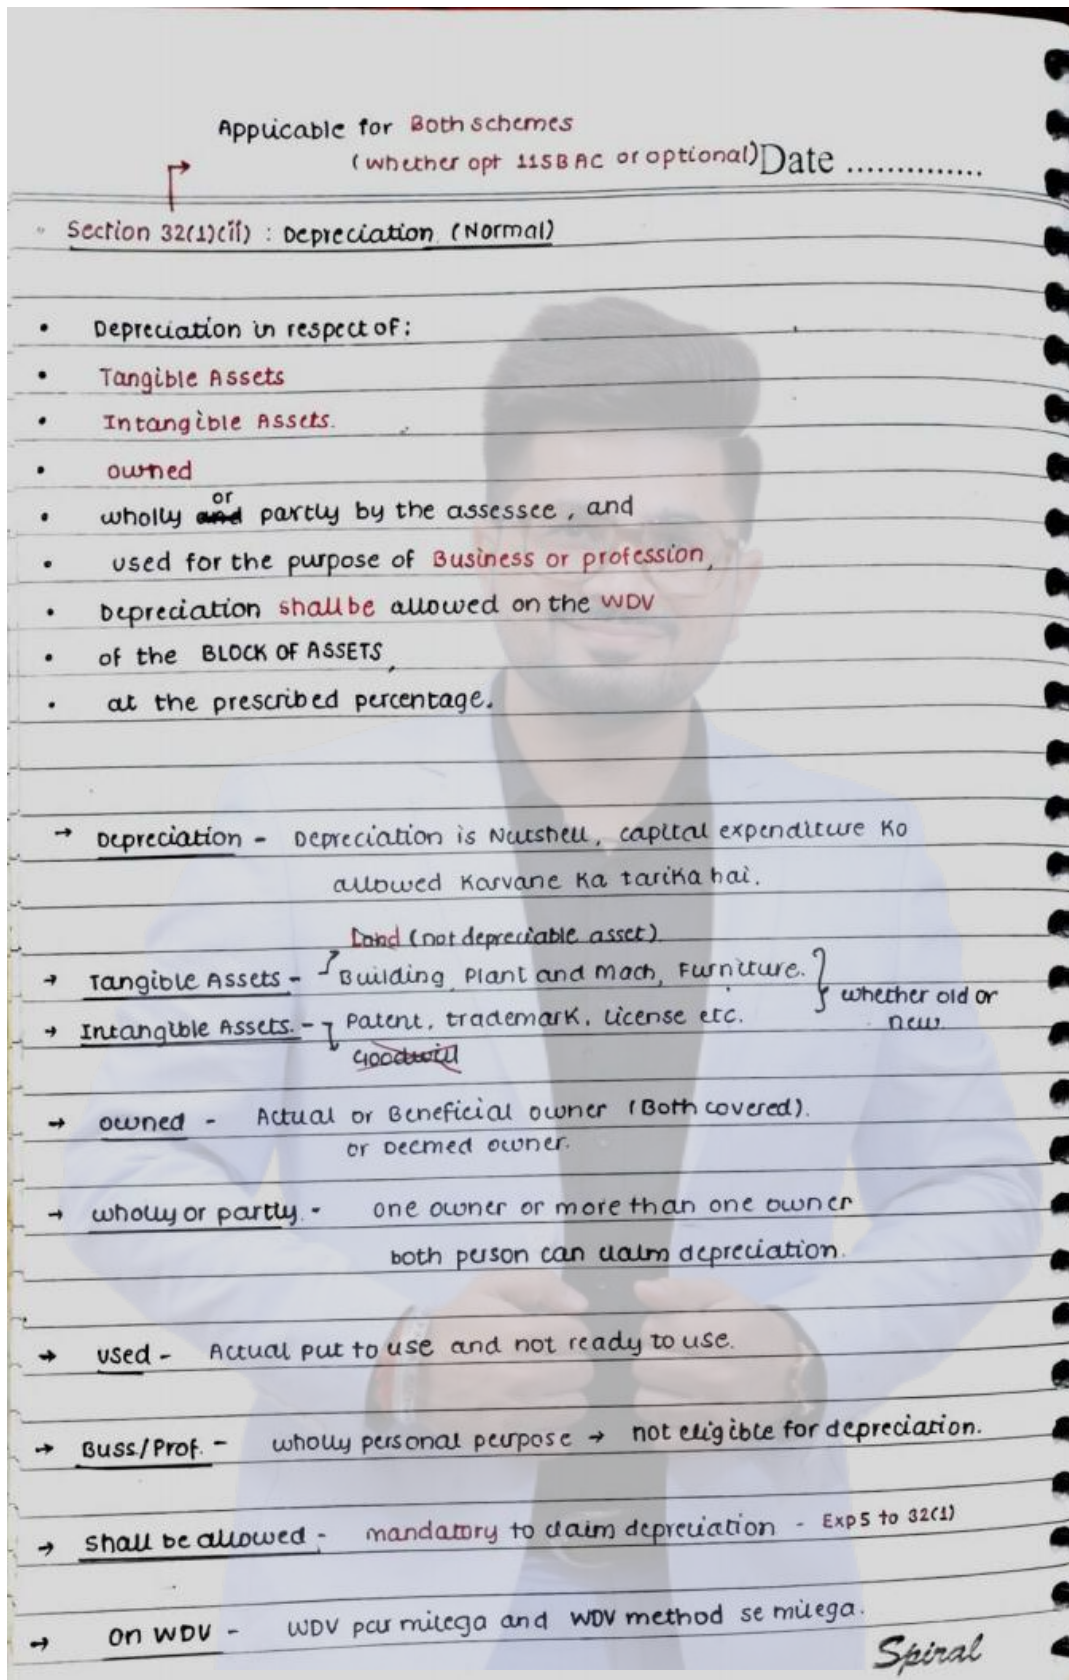 Applicable for Both schemes
(whether opt 115BAC or optional) Date ..............
Section 32(1)(ii) : Depreciation (Normal)
• Depreciation in respect of:
• Tangible Assets
• Intangible Assets.
• owned
or
• wholly and partly by the assessee, and
• used for the purpose of Business or profession,
• Depreciation shall be allowed on the WDV
• of the BLOCK OF ASSETS,
• at the prescribed percentage.
→ Depreciation - Depreciation is Nutshell, capital expenditure Ko
allowed Karvane Ka tarika hai.
Land (not depreciable asset).
→ Tangible Assets - Building, Plant and Mach, Furniture.
whether old or
→ Intangible Assets. - Patent, trademark, license etc.
new.
Goodwill
→ owned - Actual or Beneficial owner (Both covered).
or Deemed owner.
→ wholly or partly. - one owner or more than one owner
both person can claim depreciation.
→ used - Actual put to use and not ready to use.
→ Buss./Prof. - wholly personal peurpose → not eligible for depreciation.
→ shall be allowed - mandatory to claim depreciation - Exp 5 to 32(1)
→ on WDV - WDV par milega and WDV method se milega.
Spiral